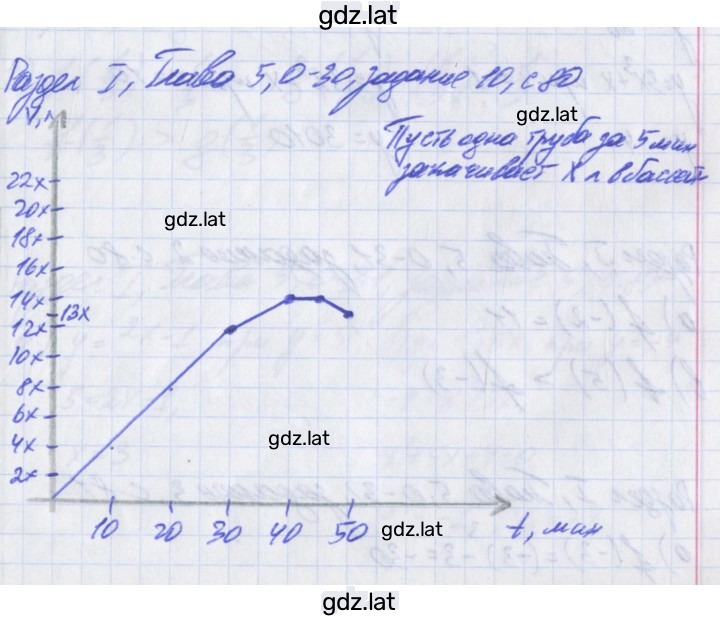 gdz.lat
Раздел I, Глава 5, О-30, задание 10, с 80
V, л
gdz.lat
Пусть одна труба за 5 мин
закачивает X л в бассейн
22x
20x
gdz.lat
18x
16x
14x
13x
12x
10x
8x
6x
gdz.lat
4x
2x
10 20 30 40 50 gdz.lat t, мин
gdz.lat